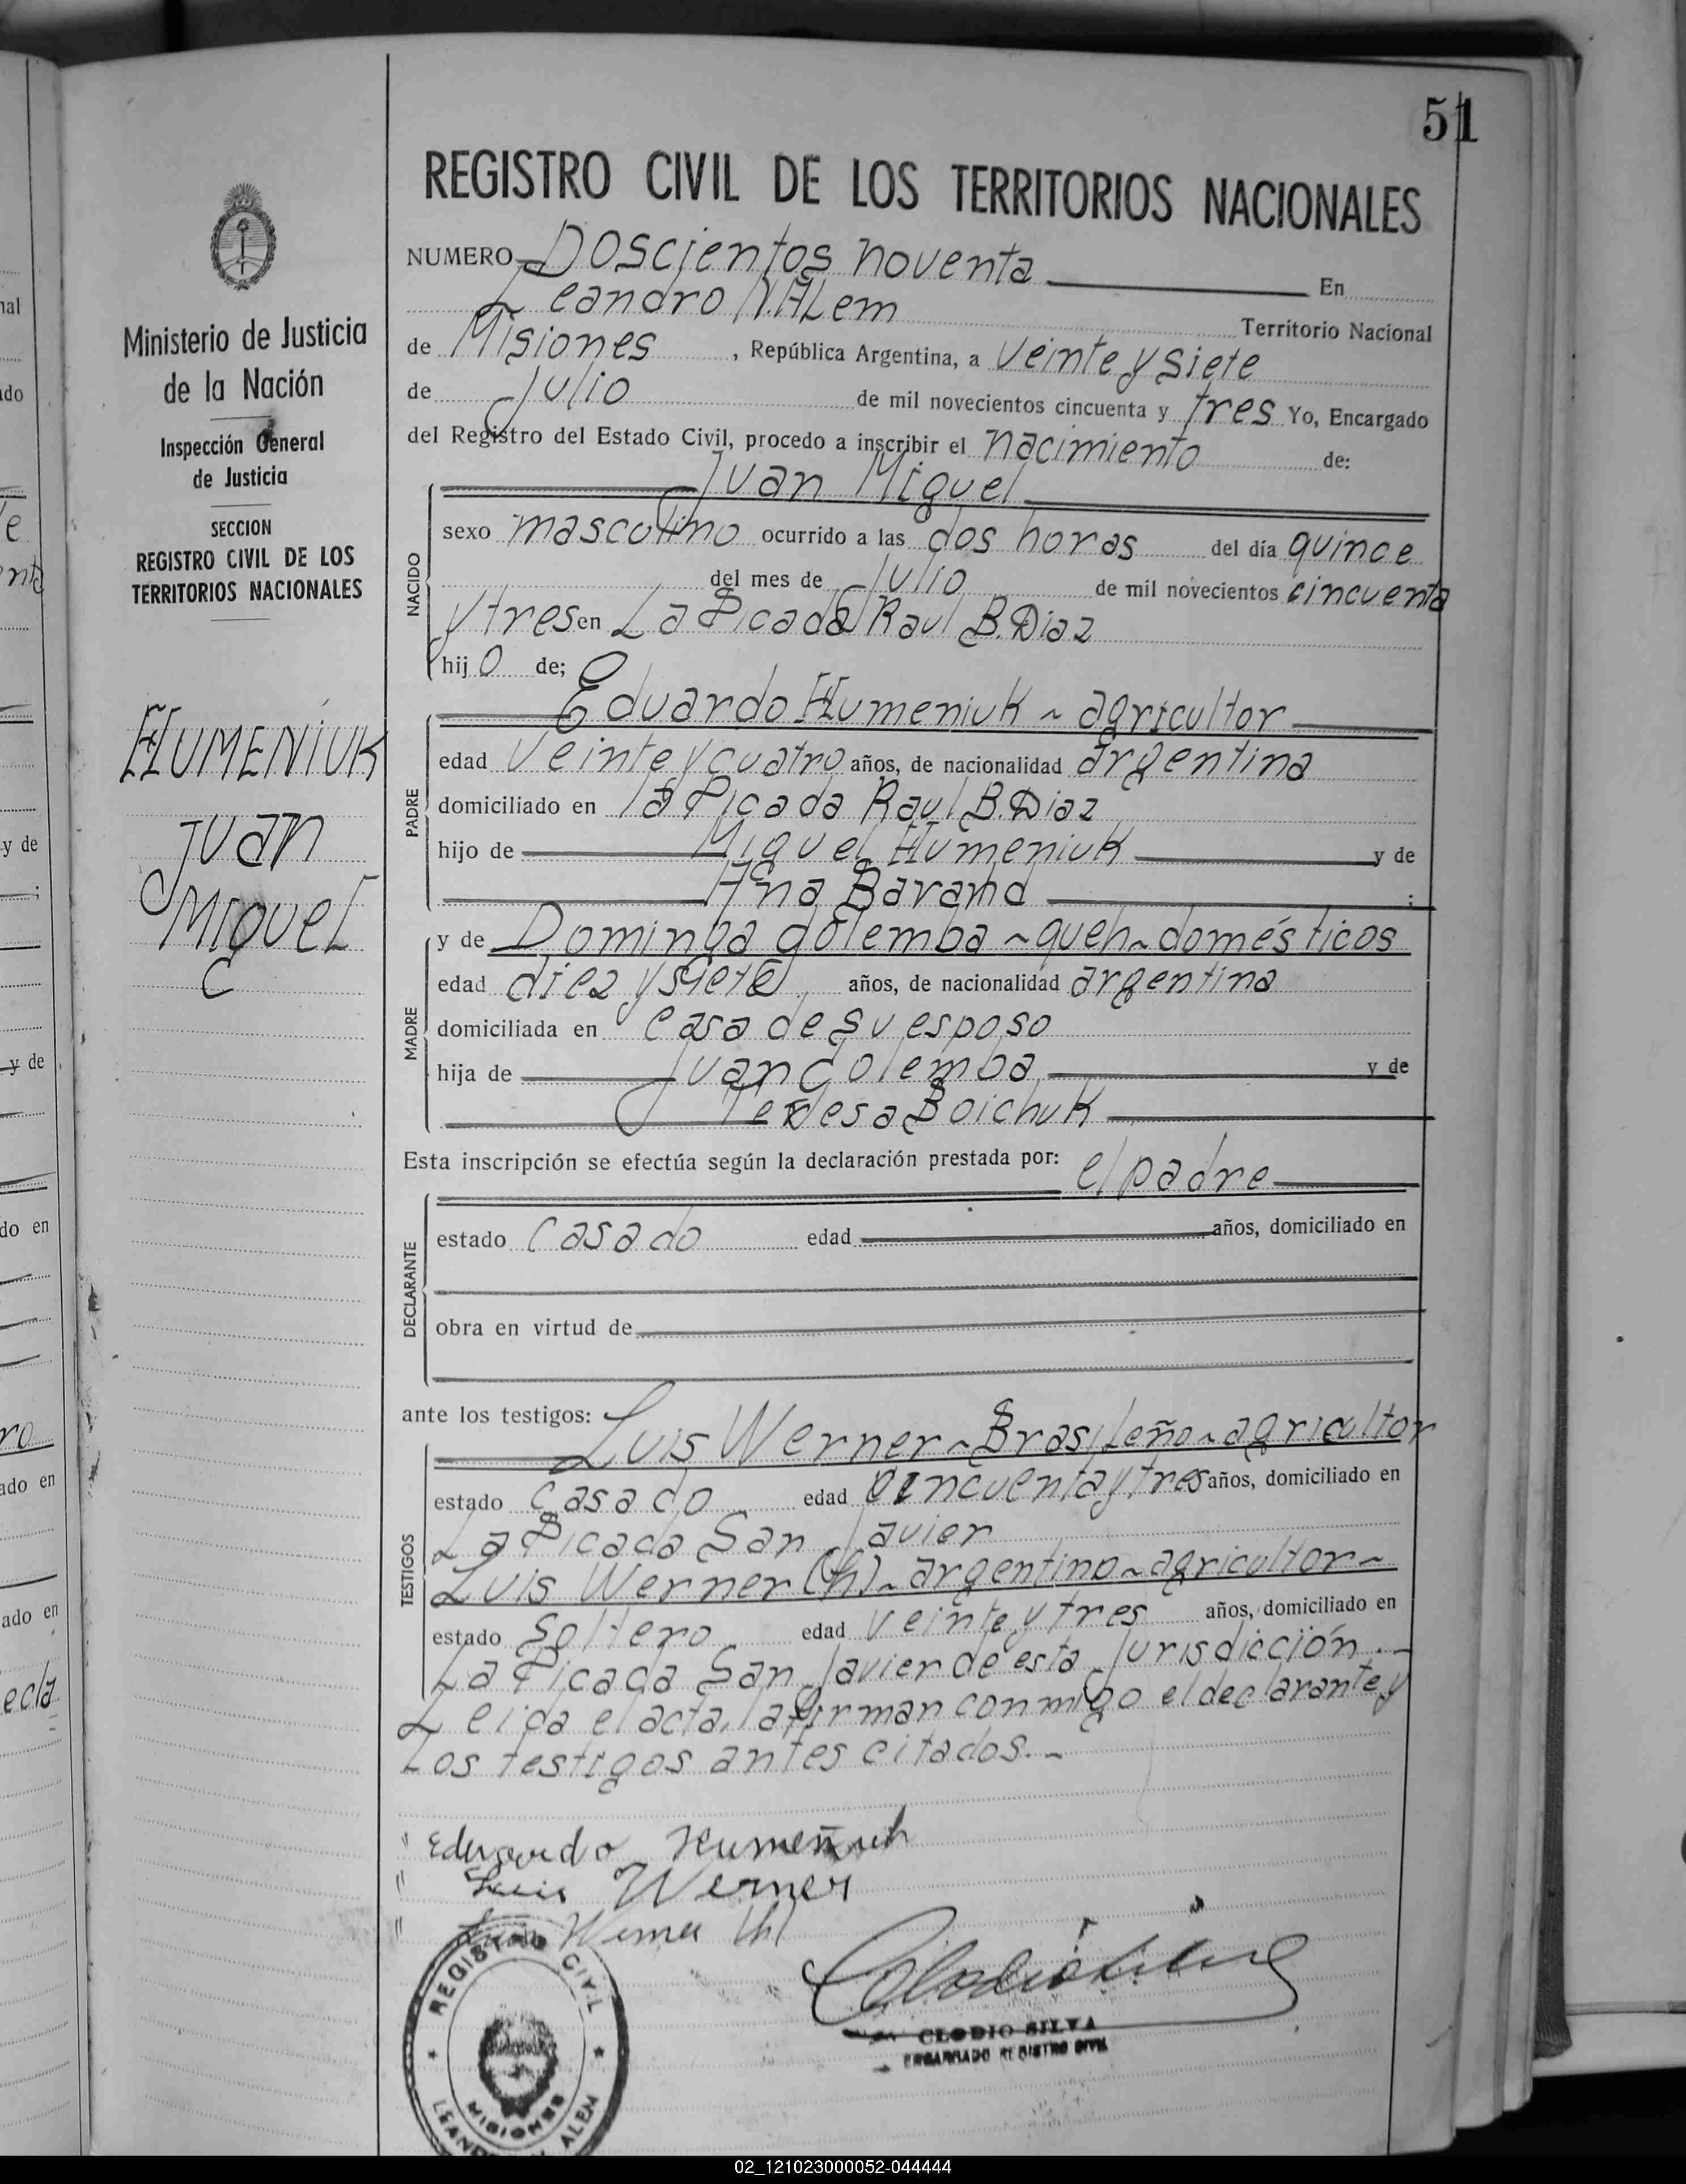 51
REGISTRO CIVIL DE LOS TERRITORIOS NACIONALES
Ministerio de Justicia
de la Nación
Inspección General
de Justicia
SECCION
REGISTRO CIVIL DE LOS
TERRITORIOS NACIONALES
HUMENIUK
Juan
Miguel
NUMERO Doscientos noventa En
Leandro N. ALem Territorio Nacional
de Misiones, República Argentina, a veinte y siete
de Julio de mil novecientos cincuenta y tres Yo, Encargado
del Registro del Estado Civil, procedo a inscribir el nacimiento de:
Juan Miguel
NACIDO
sexo masculino ocurrido a las dos horas del día quince
del mes de Julio de mil novecientos cincuenta
y tres en La Picada Raul B. Diaz
hijo de;
PADRE
Eduardo Humeniuk ~ agricultor
edad veinte y cuatro años, de nacionalidad argentina
domiciliado en la Picada Raul B. Diaz
hijo de Miguel Humeniuk y de
Ana Barand ;
MADRE
y de Dominga golemba ~ queh ~ domésticos
edad diez y siete años, de nacionalidad argentina
domiciliada en casa de su esposo
hija de Juan Golemba y de
Teresa Boichuk
Esta inscripción se efectúa según la declaración prestada por: el padre
DECLARANTE
estado casado edad años, domiciliado en
obra en virtud de
ante los testigos:
TESTIGOS
Luis Werner ~ Brasileño ~ agricultor
estado casado edad cincuenta y tres años, domiciliado en
La Picada San Javier
Luis Werner (h) ~ argentino ~ agricultor ~
estado soltero edad veinte y tres años, domiciliado en
La Picada San Javier de esta Jurisdicción. -
Leida el acta, la firman conmigo el declarante y
Los testigos antes citados. -
" Eduardo Humeniuk
" Luis Werner
" Luis Werner (h)
CLODIO SILVA
ENCARGADO REGISTRO CIVIL
REGISTRO CIVIL
MISIONES
LEANDRO N. ALEM
02_121023000052-044444